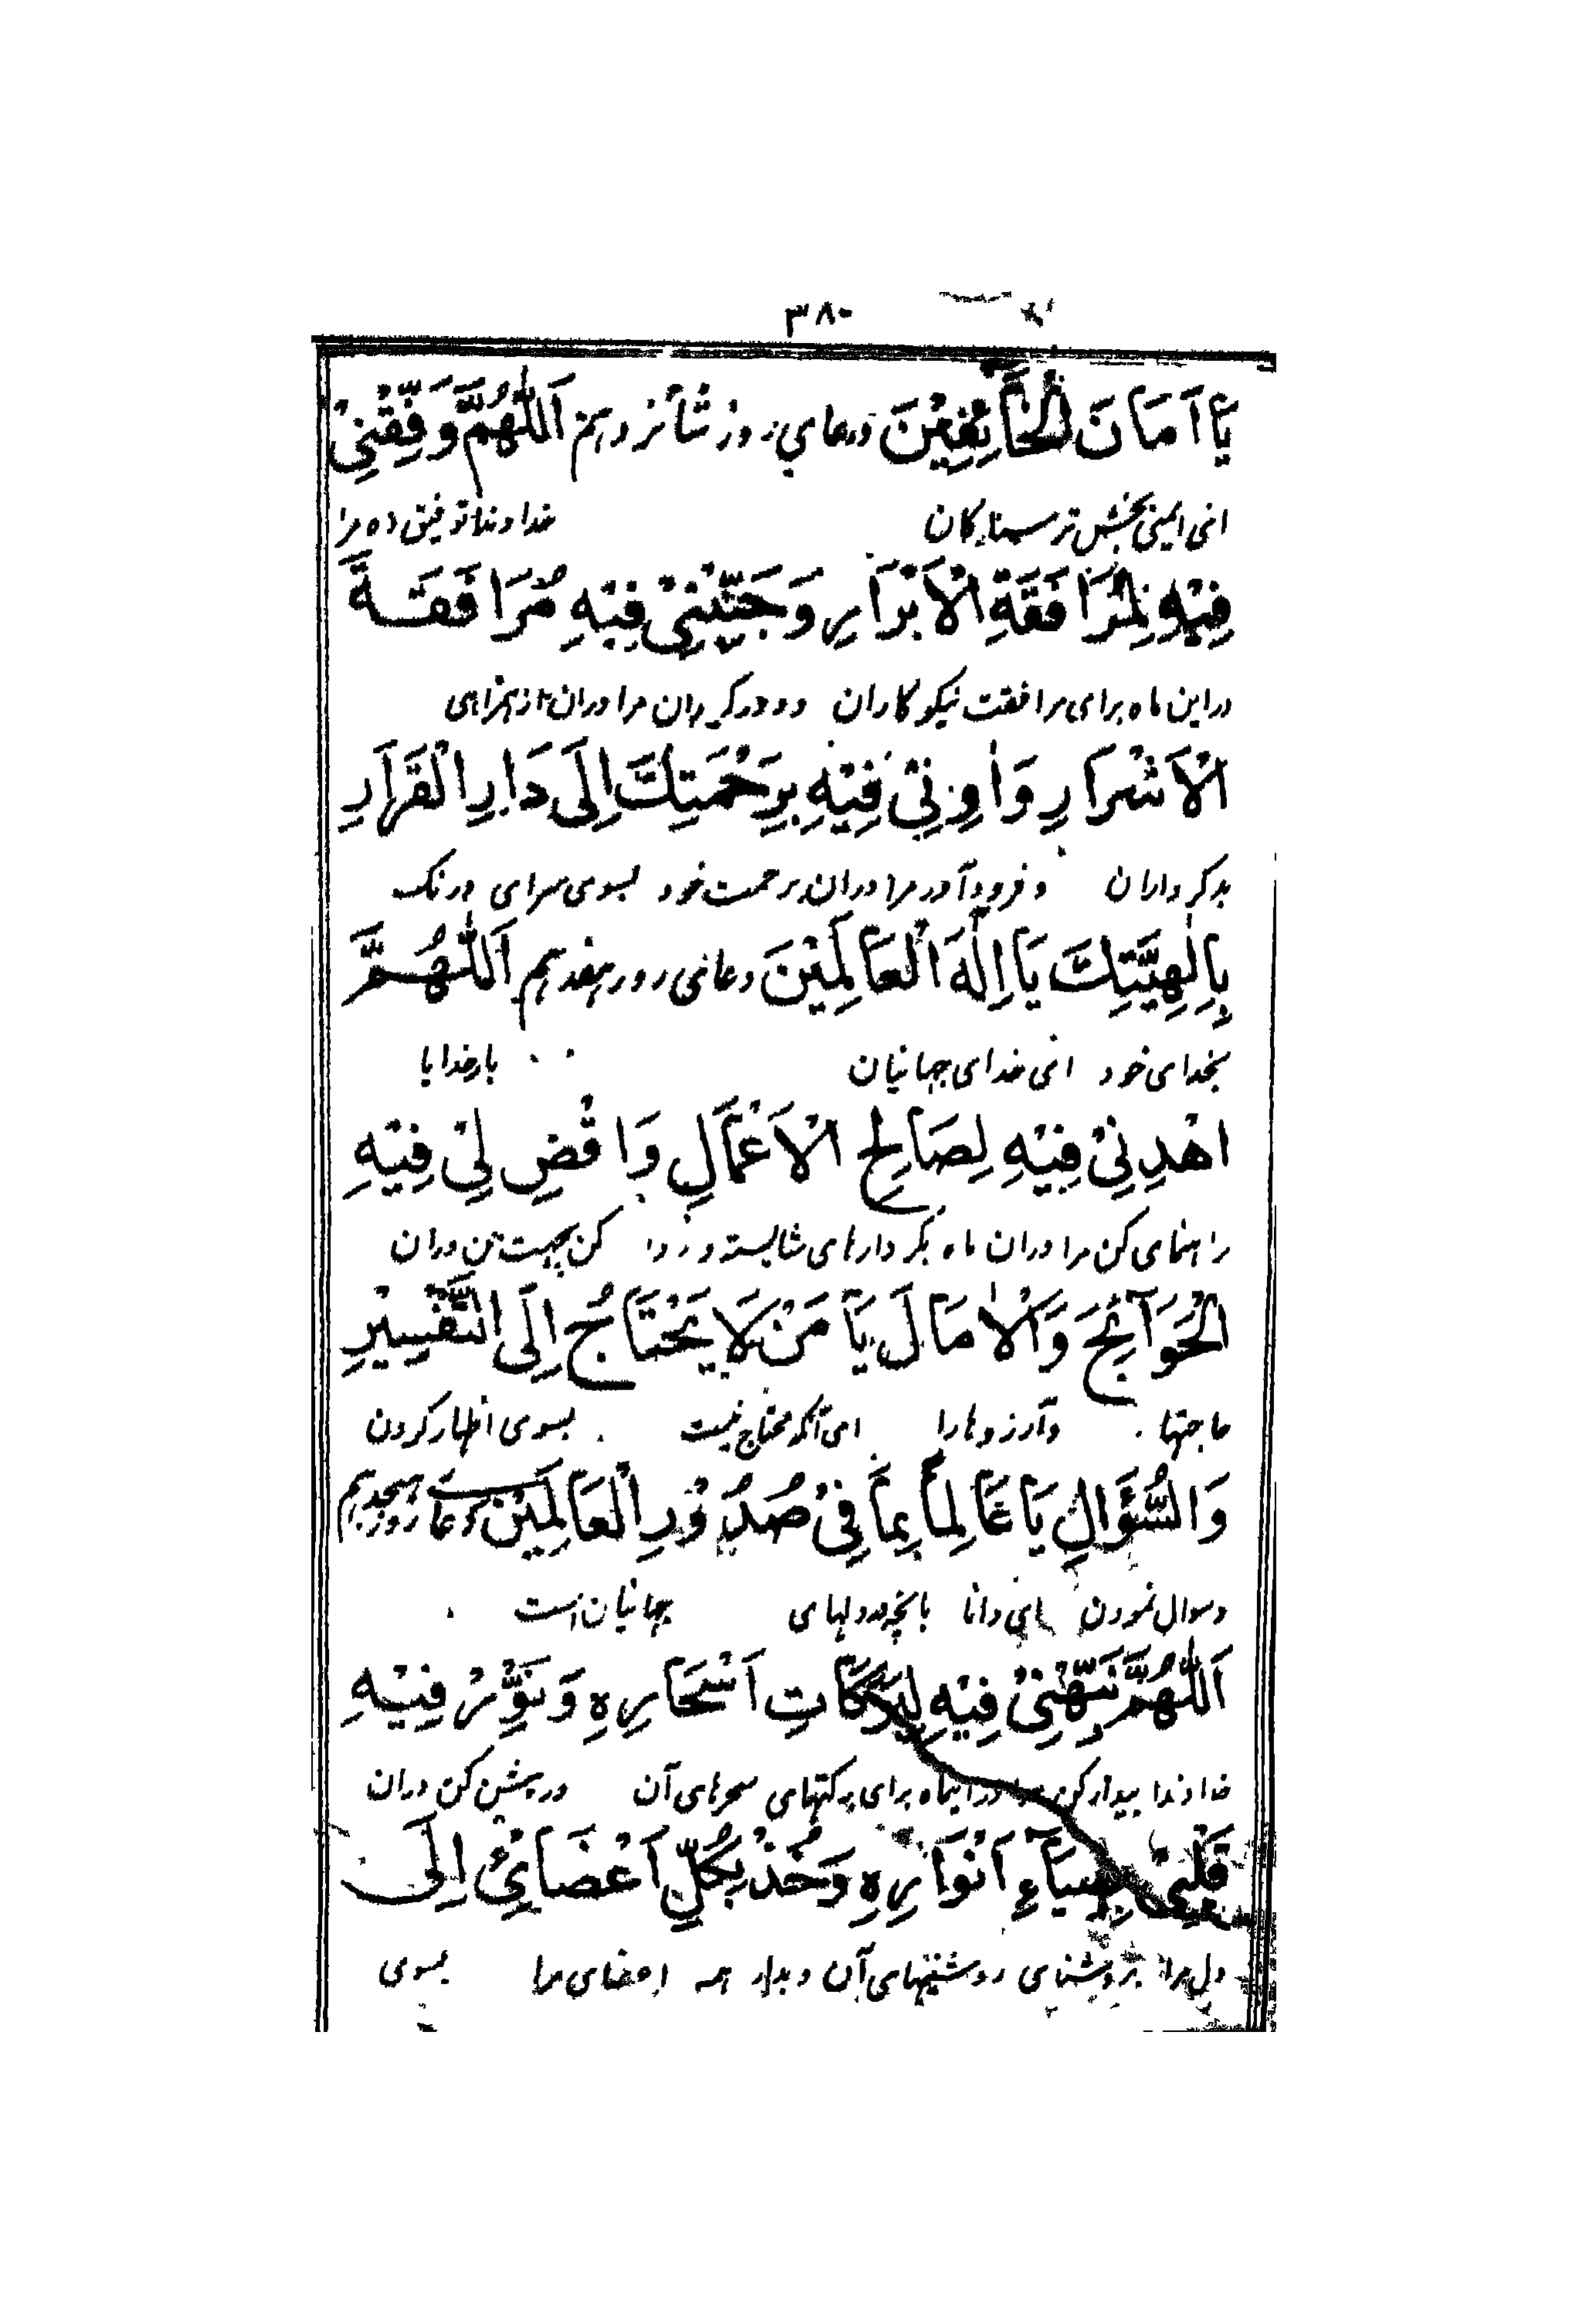 ۳۸۰
يَا اَمَانَ الْخَآئِفِيْنَ دعاى روز شانزدهم اَللّٰهُمَّ وَفِّقْنِىْ
اى ايمنى بخش ترسندگان خداوندا توفيق ده مرا
فِيْهِ لِمُرَافَقَةِ الْاَبْرَارِ وَجَنِّبْنِىْ فِيْهِ مُرَافَقَةَ
دراين ماه براى مرافقت نيكوكاران و دور گردان مرا دران از همراهى
الْاَشْرَارِ وَاٰوِنِىْ فِيْهِ بِرَحْمَتِكَ اِلَى دَارِ الْقَرَارِ
بدكرداران و فرود آور مرا دران برحمت خود بسوى سراى درنگ
بِاِلٰهِيَّتِكَ يَا اِلٰهَ الْعَالَمِيْنَ دعائى روز هفدهم اَللّٰهُمَّ
بخداى خود اى خداى جهانيان بار خدايا
اهْدِنِىْ فِيْهِ لِصَالِحِ الْاَعْمَالِ وَاقْضِ لِىْ فِيْهِ
راهنماى كن مرا دران ماه بكردارهاى شايسته و روا كن بجهت من دران
الْحَوَآئِجَ وَالْاٰمَالَ يَا مَنْ لَا يَحْتَاجُ اِلَى التَّفْسِيْرِ
حاجتها وآرزوهارا اى آنكه محتاج نيست بسوى اظهار كردن
وَالسُّؤَالِ يَا عَالِمًا بِمَا فِىْ صُدُوْرِ الْعَالَمِيْنَ دعاى روز هيجدهم
وسوال نمودن اى دانا بانچه در دلهاى جهانيان است
اَللّٰهُمَّ نَبِّهْنِىْ فِيْهِ لِبَرَكَاتِ اَسْحَارِهِ وَنَوِّرْ فِيْهِ
خداوندا بيدار كن مرا دراينماه براى بركتهاى سحرهاى آن و روشن كن دران
قَلْبِىْ بِضِيَآءِ اَنْوَارِهِ وَخُذْ بِكُلِّ اَعْضَائِىْ اِلَى
دل مرا بروشناى روشنيهاى آن و بدار همه اعضاى مرا بسوى